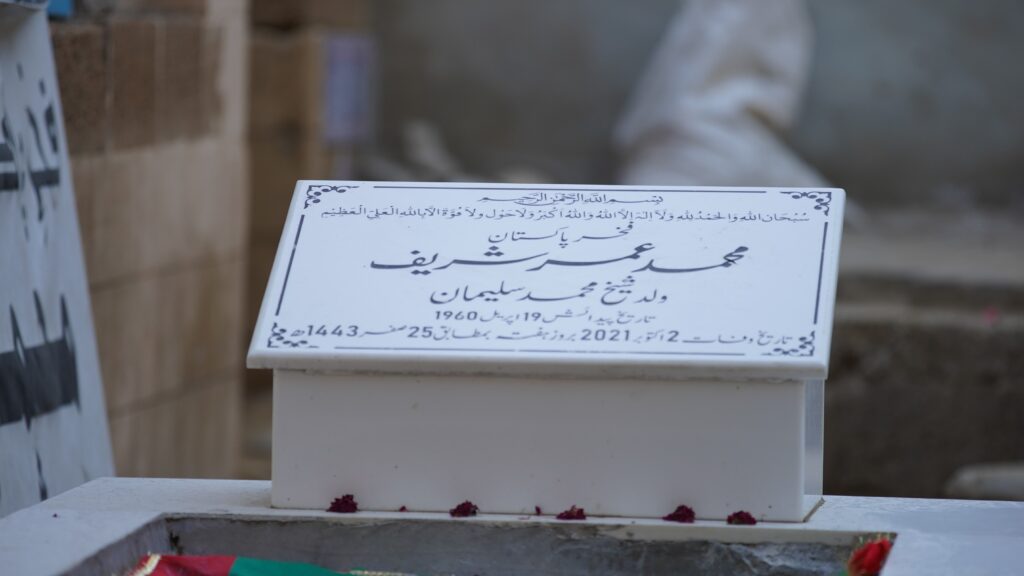 بسم الله الرحمن الرحيم
سُبْحَانَ الله وَالْحَمْدُ لِلّٰهِ وَلَا اِلٰهَ اِلَّا اللهُ وَاللهُ اَكْبَرُ وَلَا حَوْلَ وَلَا قُوَّةَ اِلَّا بِاللهِ الْعَلِيِّ الْعَظِيْمِ
فخر پاکستان
محمد عمر شریف
ولد شیخ محمد سلیمان
تاریخ پیدائش 19 اپریل 1960
تاریخ وفات 2 اکتوبر 2021 بروز ہفتہ بمطابق 25 صفر 1443ھ